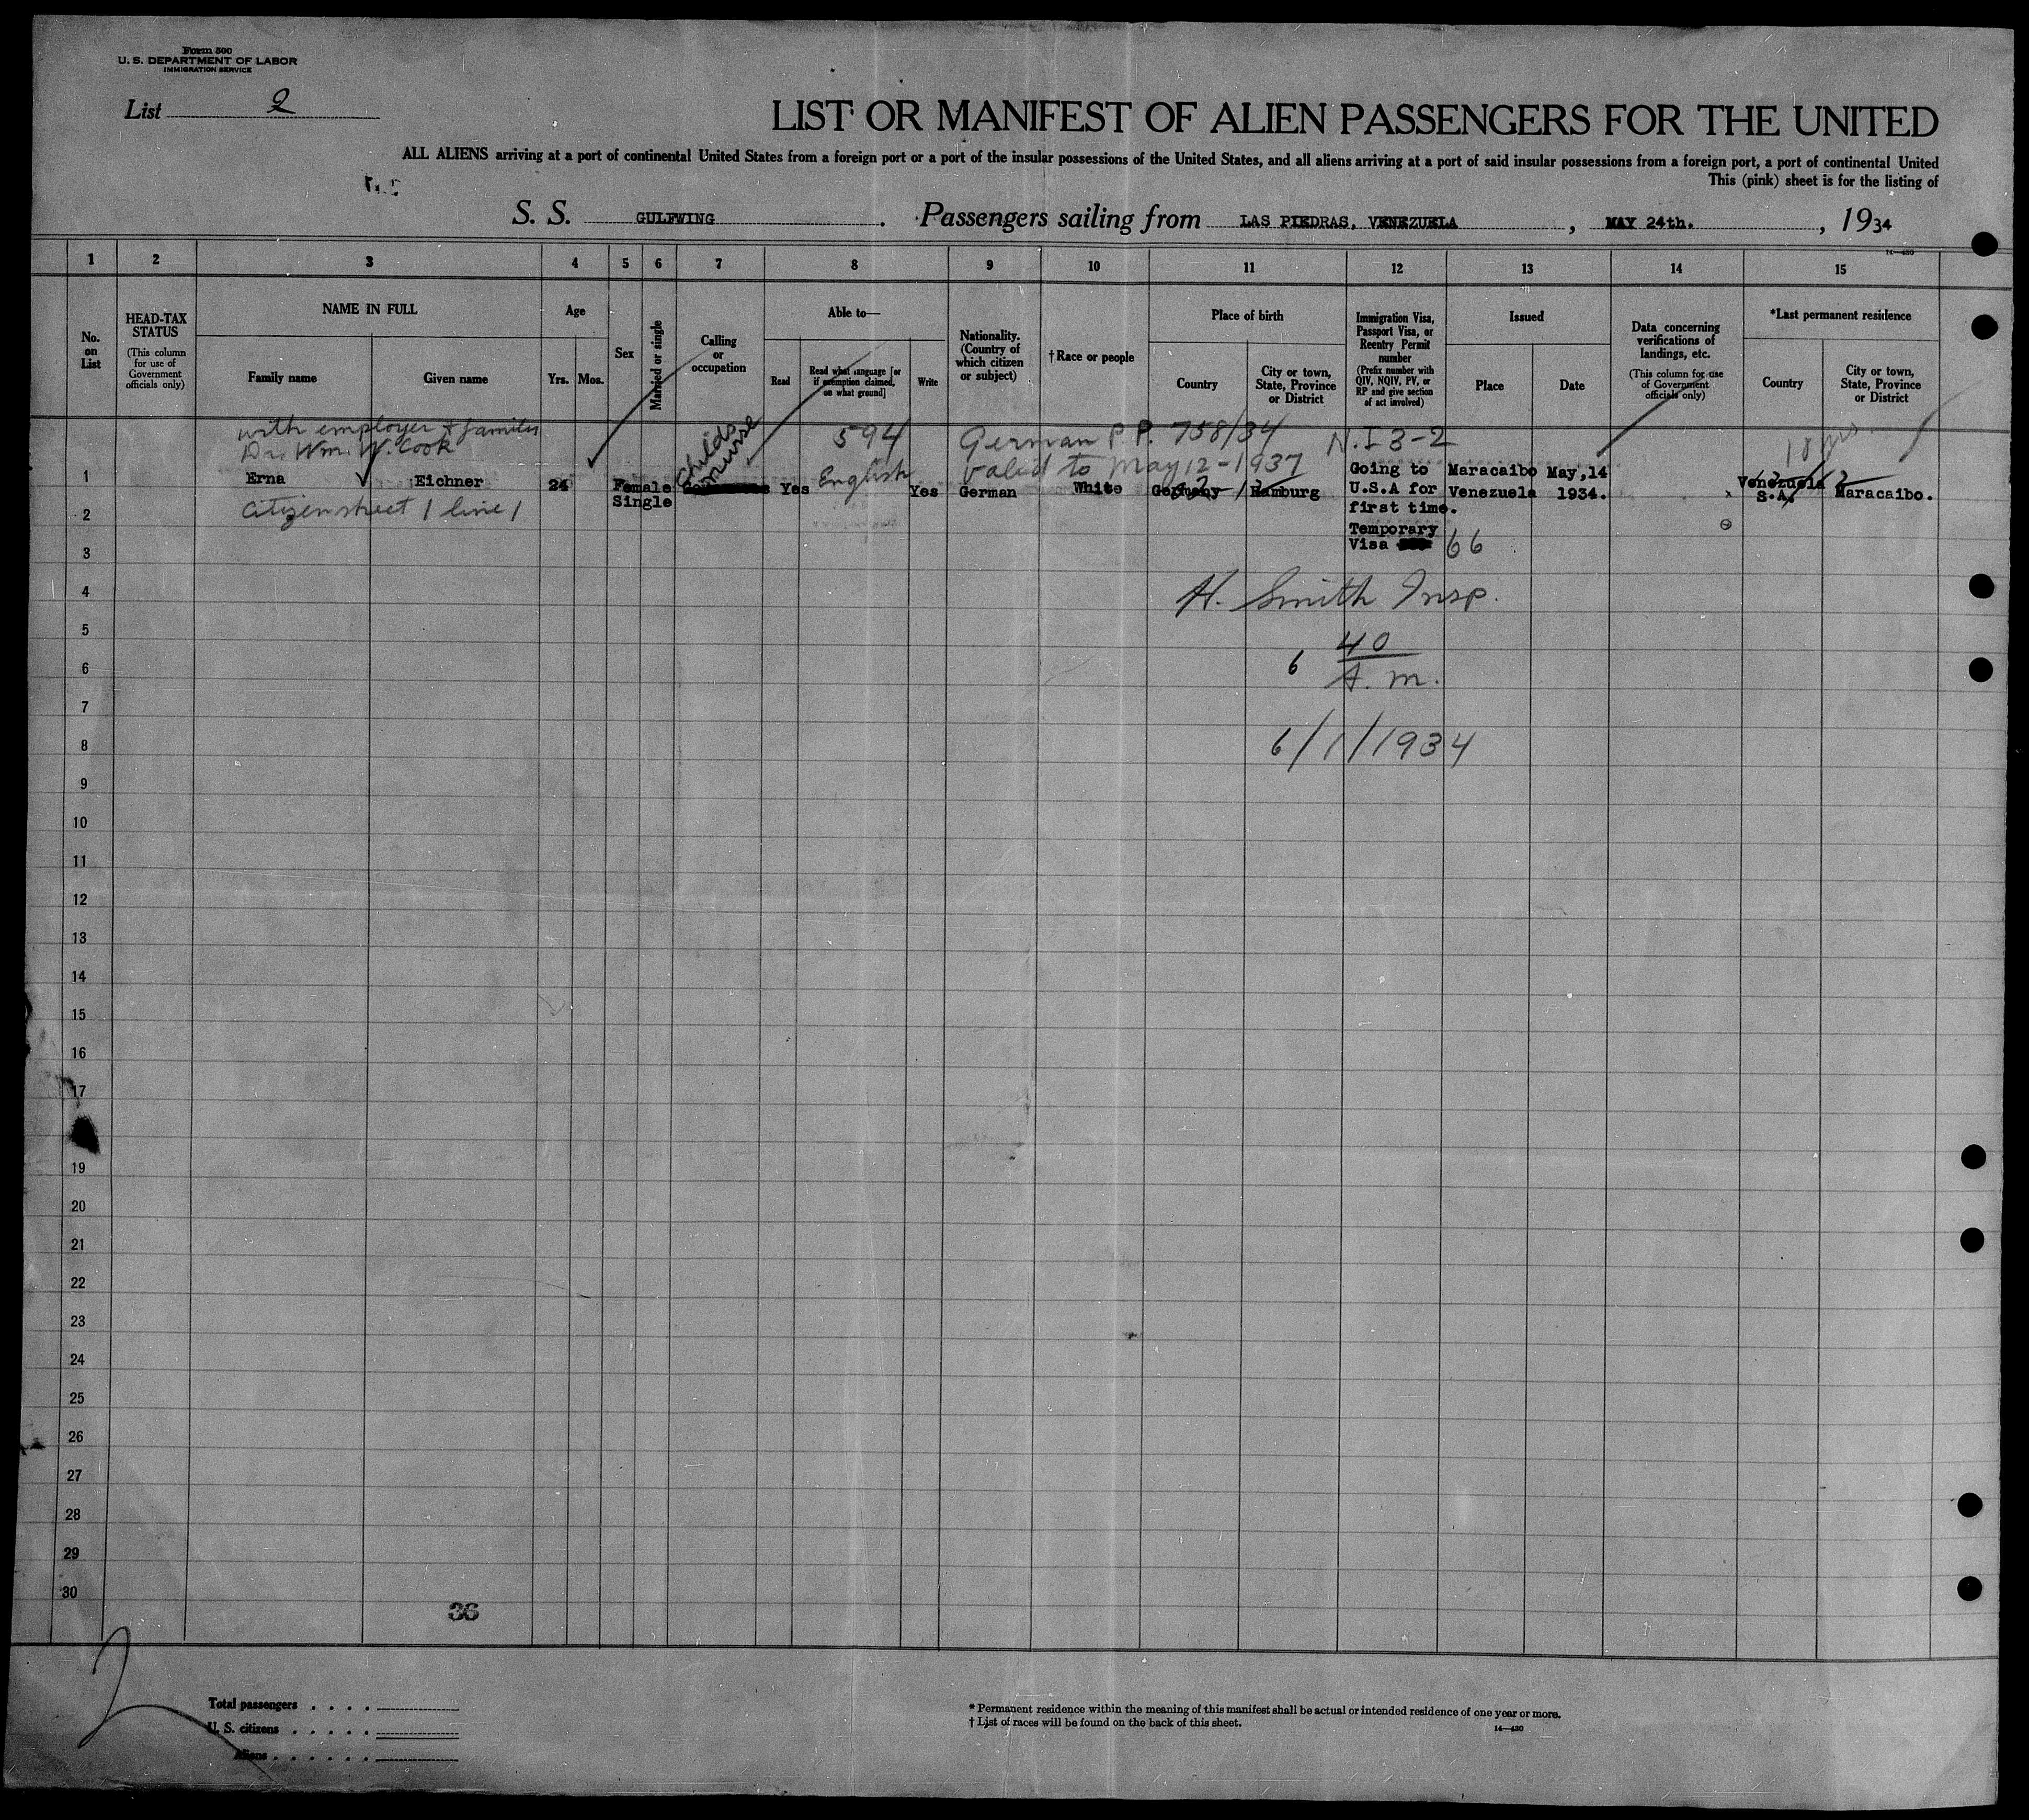 Form 500
U. S. DEPARTMENT OF LABOR
IMMIGRATION SERVICE
List 2
LIST OR MANIFEST OF ALIEN PASSENGERS FOR THE UNITED
ALL ALIENS arriving at a port of continental United States from a foreign port or a port of the insular possessions of the United States, and all aliens arriving at a port of said insular possessions from a foreign port, a port of continental United
This (pink) sheet is for the listing of
S. S. GULFWING. Passengers sailing from LAS PIEDRAS, VENEZUELA, MAY 24th., 1934
14—430
1 2 3 4 5 6 7 8 9 10 11 12 13 14 15
No. on List
HEAD-TAX STATUS
(This column for use of Government officials only)
NAME IN FULL
Family name
Given name
Age
Yrs. Mos.
Sex
Married or single
Calling or occupation
Able to—
Read
Read what language [or if exemption claimed, on what ground]
Write
Nationality. (Country of which citizen or subject)
†Race or people
Place of birth
Country
City or town, State, Province or District
Immigration Visa, Passport Visa, or Reentry Permit number
(Prefix number with QIV, NQIV, PV, or RP and give section of act involved)
Issued
Place
Date
Data concerning verifications of landings, etc.
(This column for use of Government officials only)
*Last permanent residence
Country
City or town, State, Province or District
with employer & families
Dr. Wm. W. Cook
Childs nurse
594
German P.P. 758/34
N.I 3-2
18 yrs.
valid to May 12-1937
1 Erna Eichner 24 Female Single Yes English Yes German White Germany Hamburg
Going to
U.S.A for
first time.
Temporary
Visa 66
Maracaibo
Venezuela
May,14
1934.
Venezuela
S.A,
Maracaibo.
Citizen sheet 1 line 1
2
3
4
H. Smith Insp.
5
6 40
6
A. m.
7
8
6/1/1934
9
10
11
12
13
14
15
16
17
19
20
21
22
23
24
25
26
27
28
29
30
36
2
Total passengers
U. S. citizens
Aliens
* Permanent residence within the meaning of this manifest shall be actual or intended residence of one year or more.
† List of races will be found on the back of this sheet.
14—430